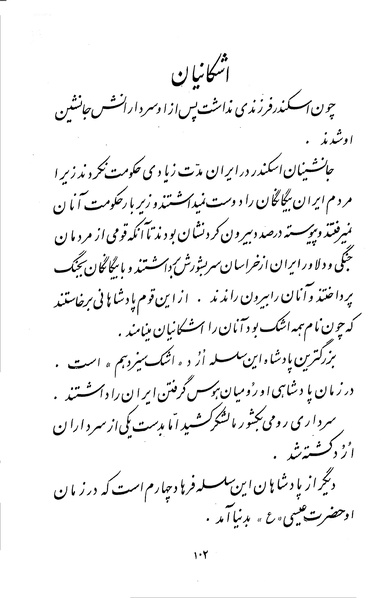 اشکانیان
چون اسکندر فرزندی نداشت پس از او سردارانش جانشین
او شدند .
جانشینان اسکندر در ایران مدّت زیادی حکومت نکردند زیرا
مردم ایران بیگانگان را دوست نمیداشتند و زیر بار حکومت آنان
نمیرفتند و پیوسته در صدد بیرون کردنشان بودند تا آنکه قومی از مردمان
جنگی و دلاور ایران از خراسان سر بشورش برداشتند و با بیگانگان بجنگ
پرداختند و آنان را بیرون راندند . از این قوم پادشاهانی برخاستند
که چون نام همه اشک بود آنان را اشکانیان مینامند .
بزرگترین پادشاه این سلسله اُرُد « اشک سیزدهم » است .
در زمان پادشاهی او رُومیان هوس گرفتن ایران را داشتند .
سرداری رومی بکشور ما لشکر کشید امّا بدست یکی از سرداران
اُرُد کشته شد .
دیگر از پادشاهان این سلسله فرهاد چهارم است که در زمان
او حضرت عیسی « ع » بدنیا آمد .
۱۰۲